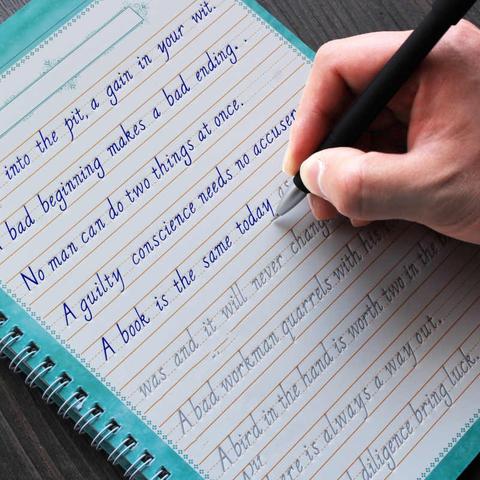 into the pit, a gain in your wit.
bad beginning makes a bad ending.
No man can do two things at once.
A guilty conscience needs no accuser
A book is the same today as
was and it will never change
A bad workman quarrels with his
A bird in the hand is worth two in the
There is always a way out.
diligence bring luck.